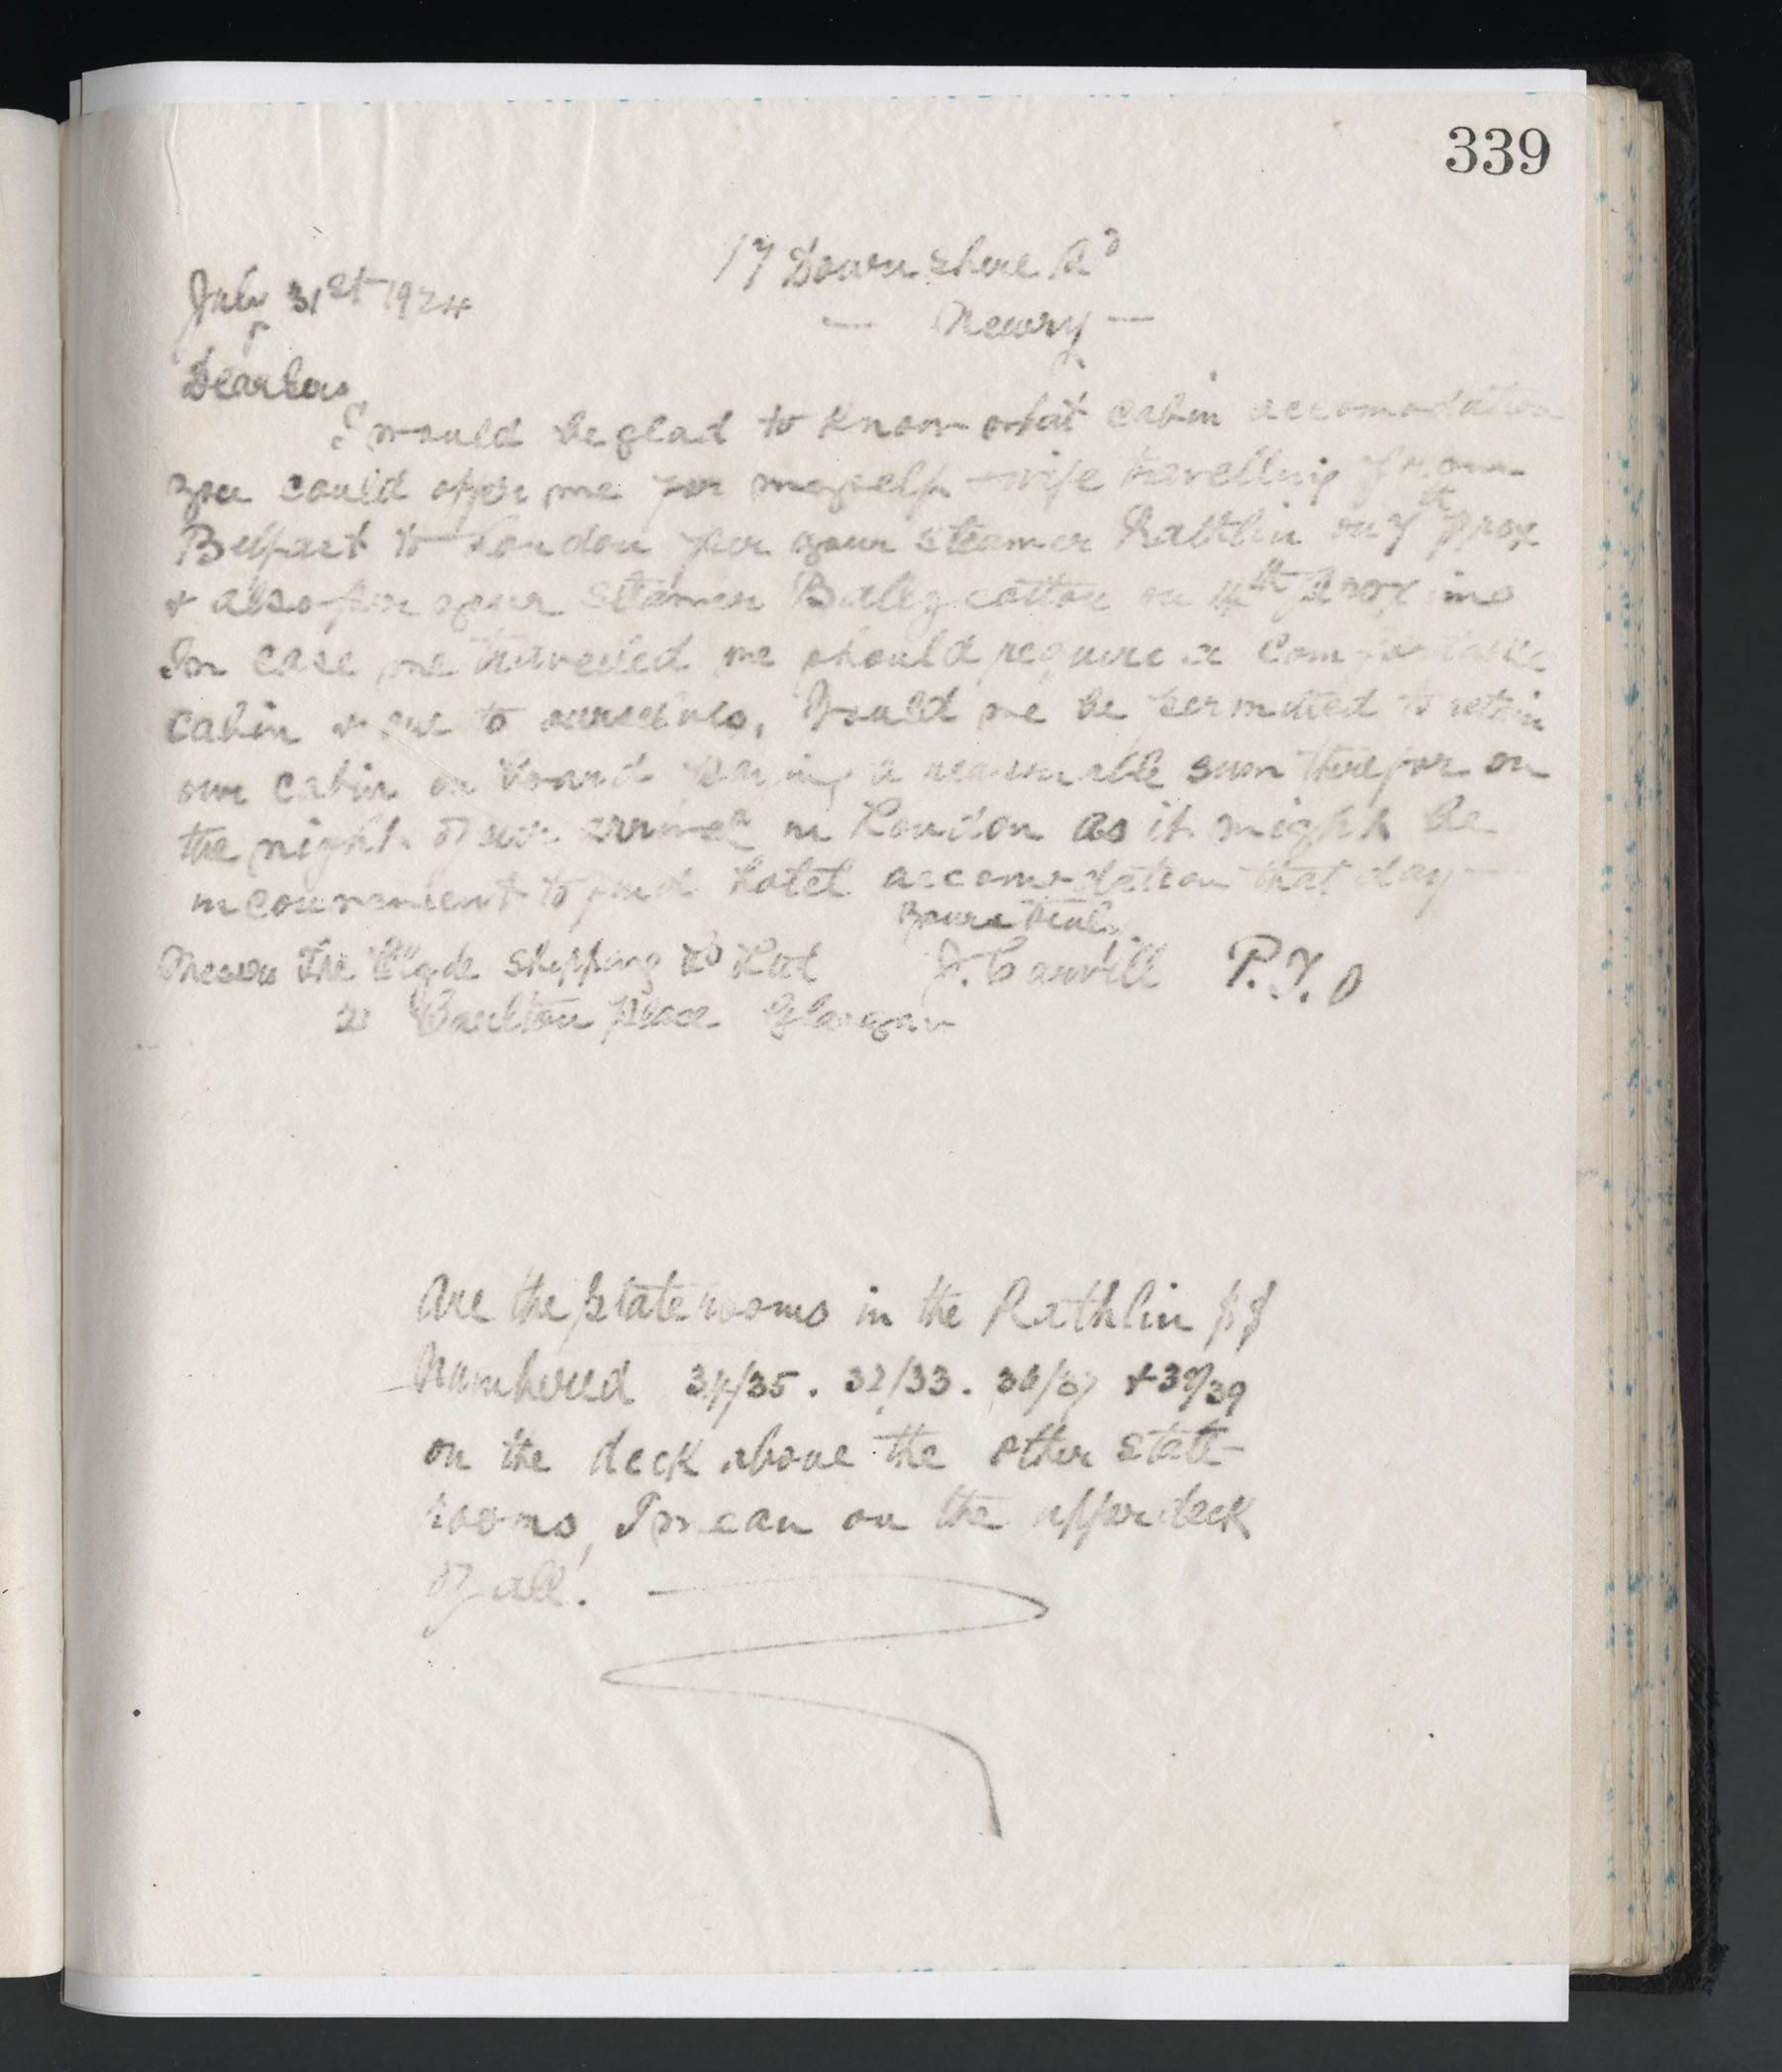 339
17 Downshire Rd
July 31st 1924
— Newry —
Dear Sirs
I would be glad to know what cabin accomodation
you could offer me for myself & wife travelling from
Belfast to London per your steamer Rathlin on 7th prox
& also per your steamer Ballycotton on 14th proximo
In case we travelled we should require a comfortable
cabin to ourselves, Would we be permitted to retain
our cabin on board paying a reasonable sum therefor on
the night of our arrival in London as it might be
inconvenient to find hotel accomodation that day —
Yours truly
Messrs The Clyde Shipping Co Ltd J. Carvill P.T.O
21 Carlton Place Glasgow
Are the state rooms in the Rathlin
Numbered 34/35. 32/33. 36/37 & 38/39
on the deck above the other state-
rooms, I mean on the upper deck
of all.